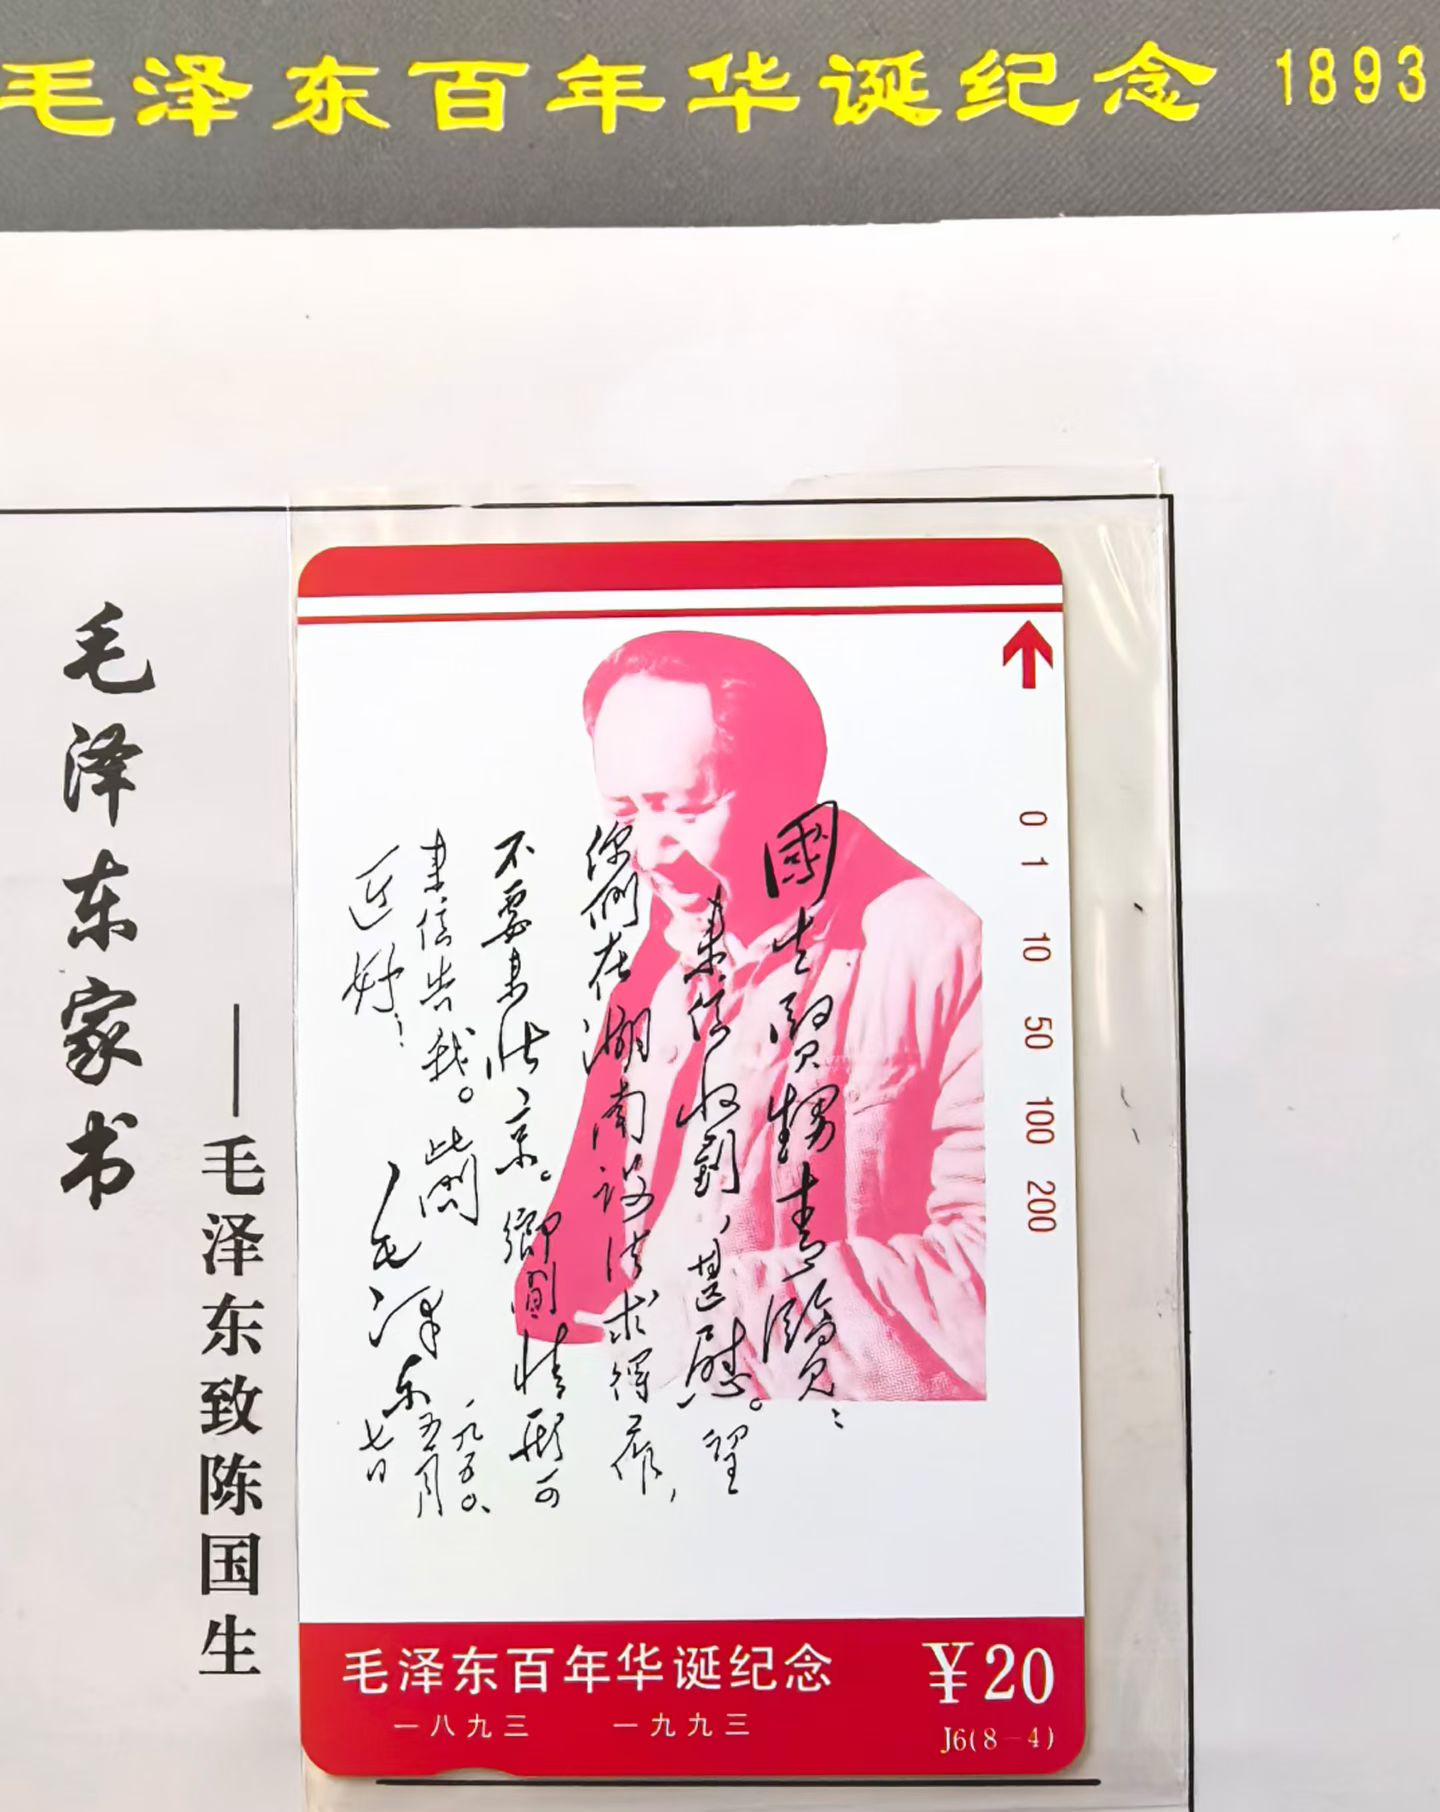 毛泽东百年华诞纪念 1893
毛泽东家书
——毛泽东致陈国生
國生賢甥青覽：
来信收到，甚慰。望
你们在湖南设法求得工作，
不要来北京。鄉間情形可
来信告我。此問
近好！
毛泽东
一九五〇、
五月
七日
0 1 10 50 100 200
毛泽东百年华诞纪念
一八九三 一九九三
￥20
J6(8－4)